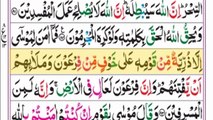 السِّحْرُ ؕ اِنَّ اللّٰهَ سَيُبْطِلُهٗ ؕ اِنَّ اللّٰهَ لَا يُصْلِحُ عَمَلَ الْمُفْسِدِيْنَ
وَيُحِقُّ اللّٰهُ الْحَقَّ بِكَلِمٰتِهٖ وَلَوْ كَرِهَ الْمُجْرِمُوْنَ فَمَاۤ اٰمَنَ لِمُوْسٰۤى
اِلَّا ذُرِّيَّةٌ مِّنْ قَوْمِهٖ عَلٰى خَوْفٍ مِّنْ فِرْعَوْنَ وَمَلَا۟ئِهِمْ
اَنْ يَّفْتِنَهُمْ ؕ وَاِنَّ فِرْعَوْنَ لَعَالٍ فِى الْاَرْضِ ۚ وَاِنَّهٗ لَمِنَ
الْمُسْرِفِيْنَ وَقَالَ مُوْسٰى يٰقَوْمِ اِنْ كُنْتُمْ اٰمَنْتُمْ بِاللّٰهِ